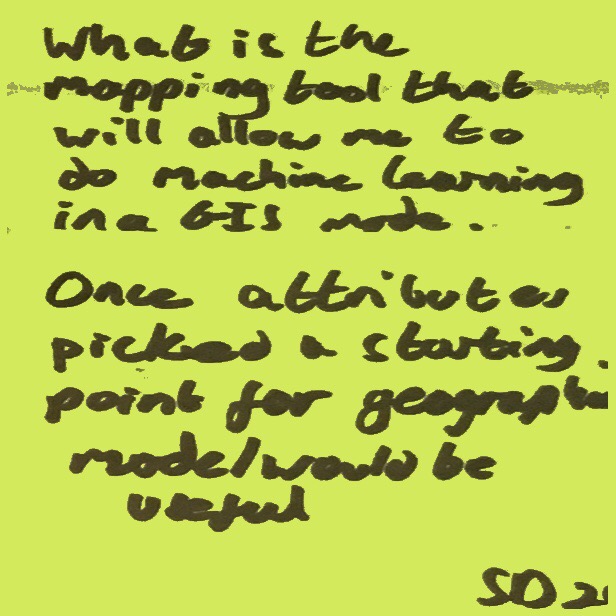 What is the
mapping tool that
will allow me to
do machine learning
in a GIS mode.
Once attributes
picked a starting
point for
model would be
useful
SD